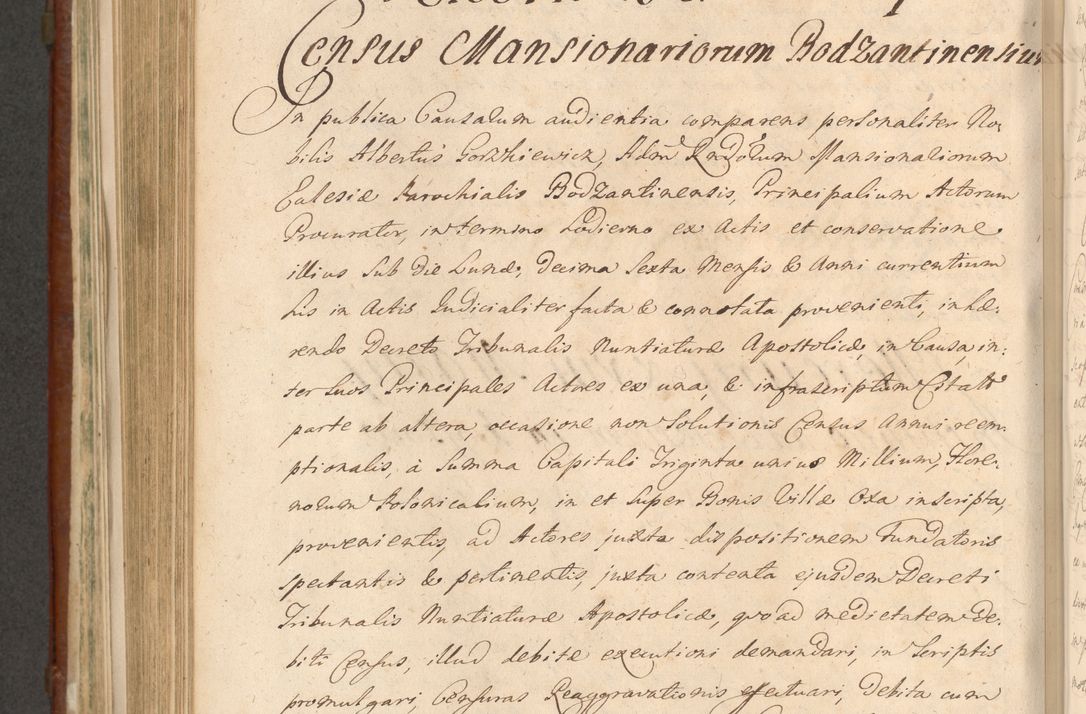 Census Mansionariorum Bodzantinensium
In publica Causarum audientia comparens personaliter No-
bilis Albertus Gorzkiewicz, Adm Rndorum Mansionariorum
Eclesiæ Parochialis Bodzantinensis, Principalium Actorum
Procurator, in termino hodierno ex Actis et conservatione
illius sub die Lunæ, decima Sexta Mensis & Anni currentium
his in Actis Judicialiter facta & connotata provenienti, inhæ-
rendo Decreto Tribunalis Nuntiaturæ Apostolicæ, in Causa in-
ter Suos Principales Actores ex una, & infrascriptum Citatt
parte ab altera, occasione non Solutionis Census Annui reem-
ptionalis, à Summa Capitali Triginta unius Millium, Flore-
norum Polonicalium, in et super Bonis Villæ Oxa inscripta,
provenientis, ad Actores juxta dispositionem Fundatoris
spectantis & pertinentis, juxta contenta ejusdem Decreti
Tribunalis Nuntiaturæ Apostolicæ, quoad medietatem De-
biti Census, illud debitæ executioni demandari, in Scriptis
promulgari, Censuras Reaggravationis effectuari, debita cum